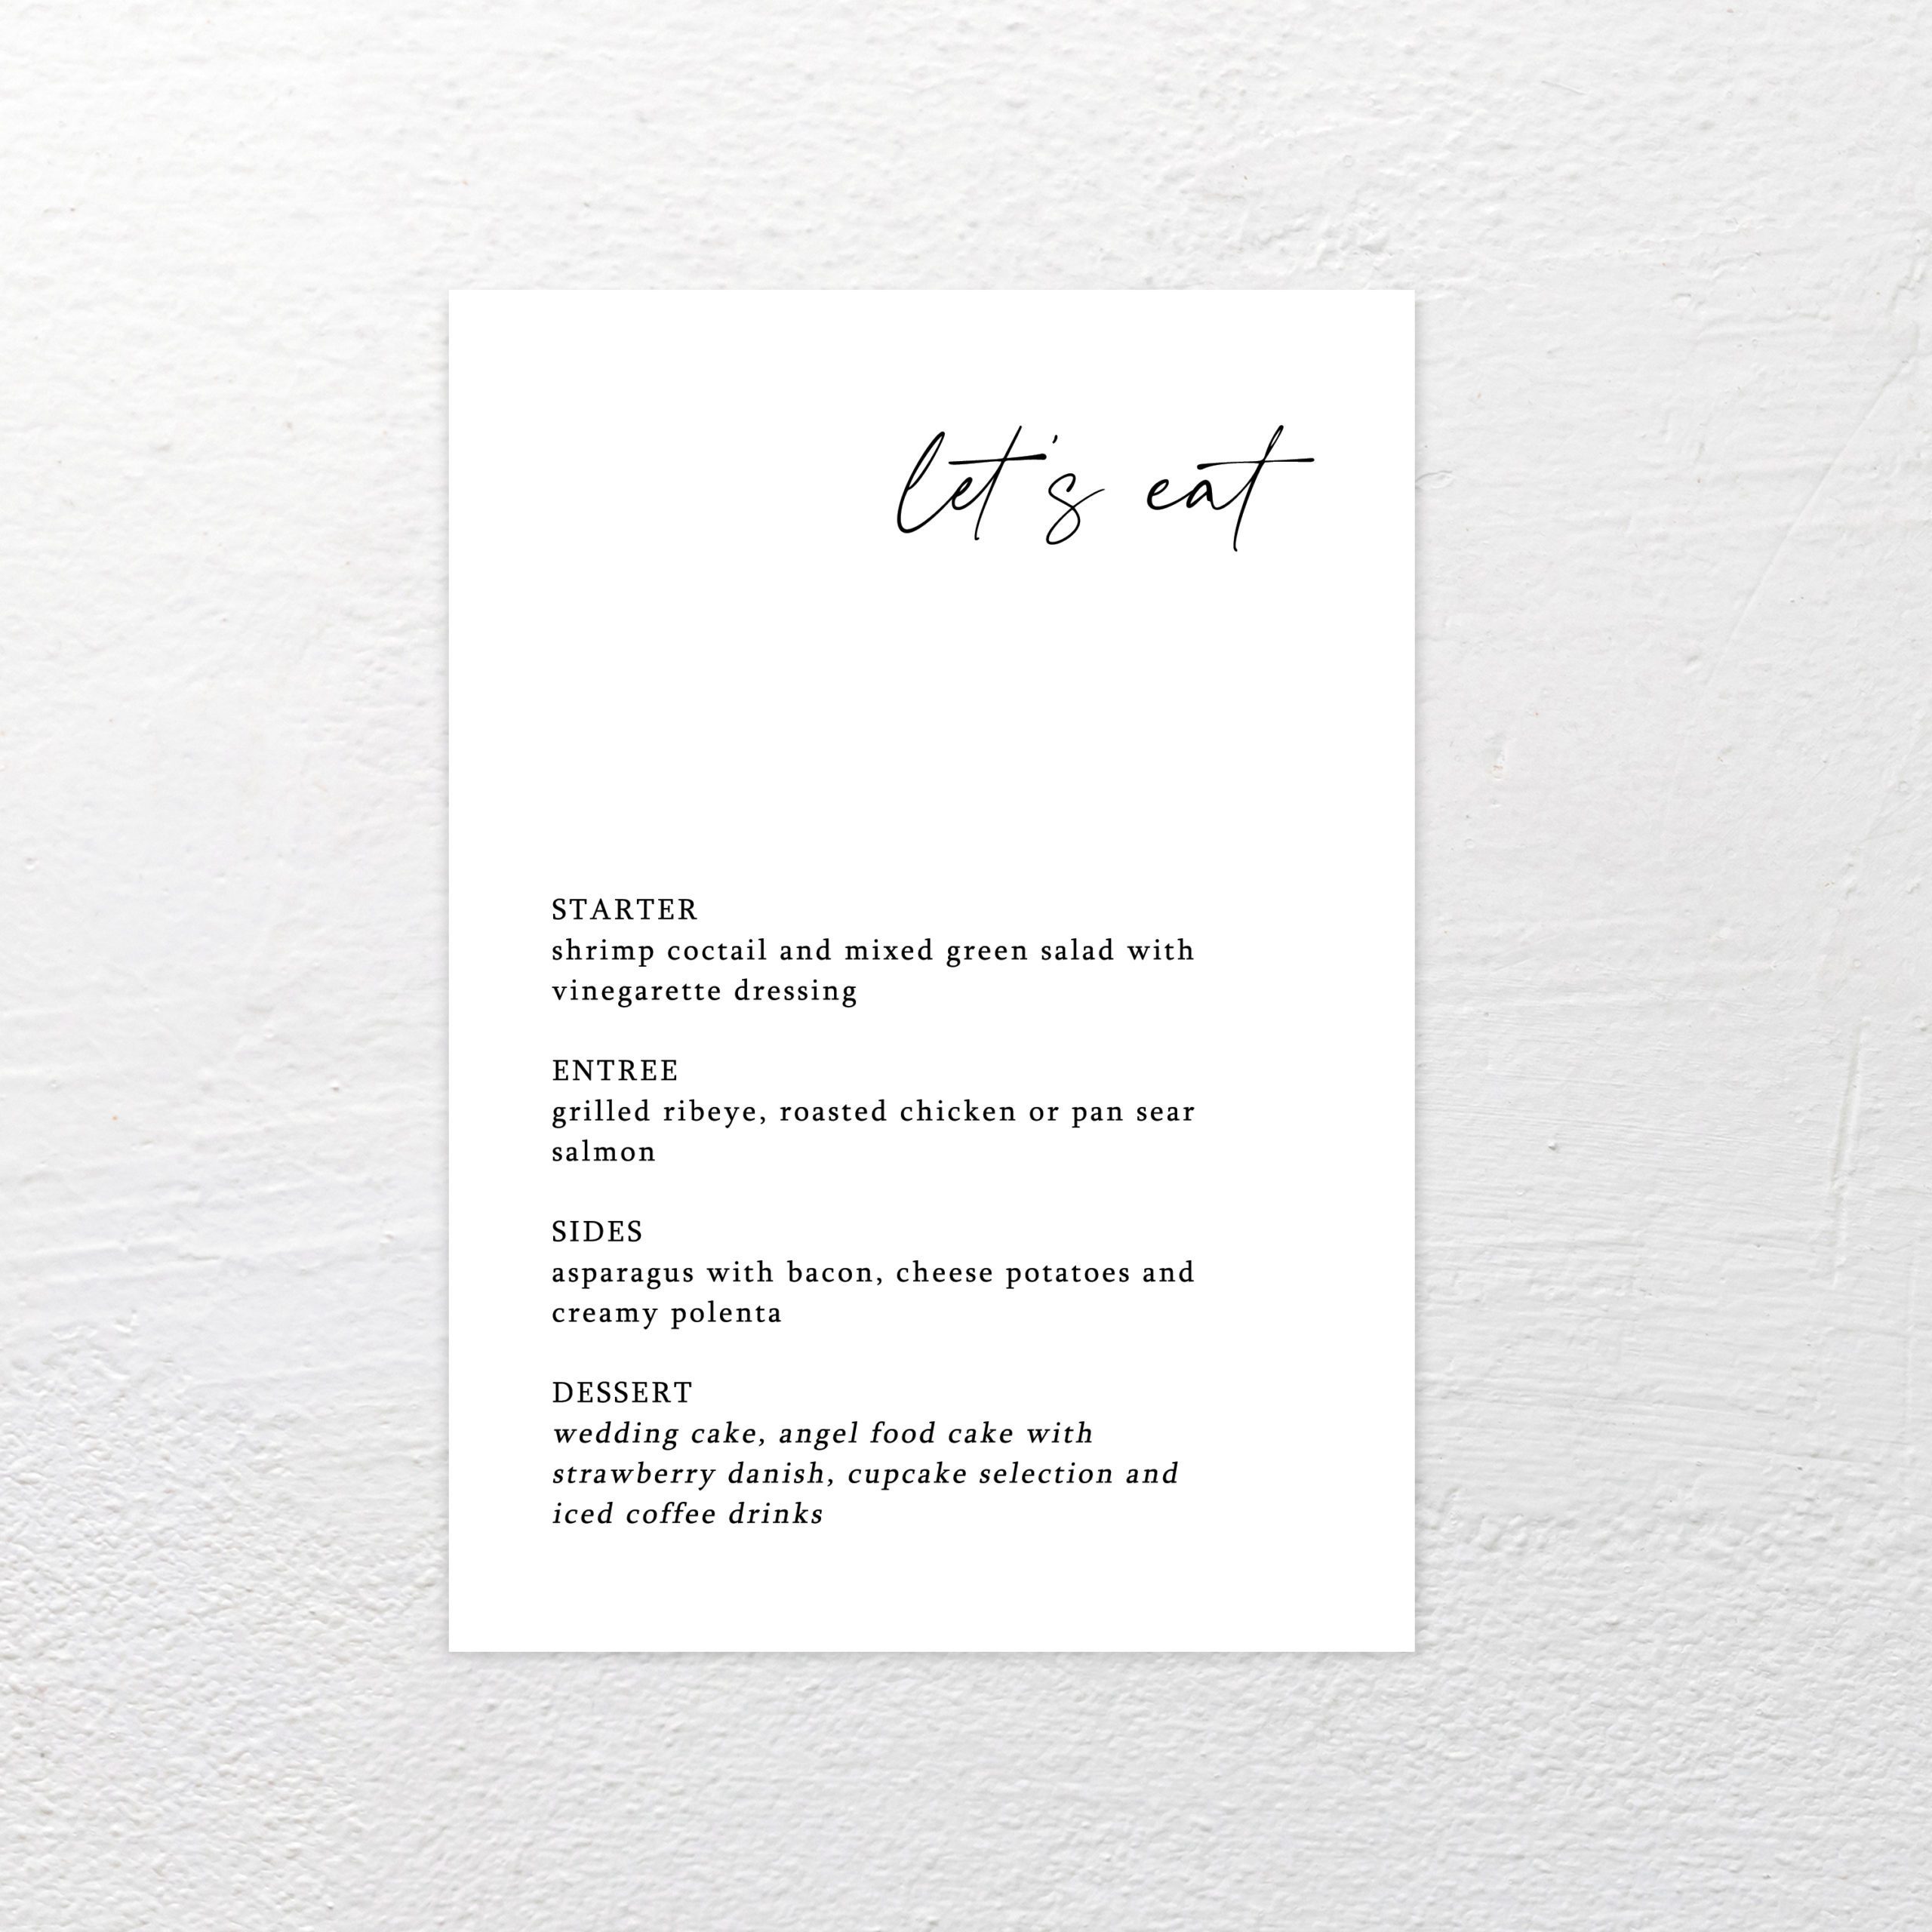 let's eat
STARTER
shrimp coctail and mixed green salad with
vinegarette dressing
ENTREE
grilled ribeye, roasted chicken or pan sear
salmon
SIDES
asparagus with bacon, cheese potatoes and
creamy polenta
DESSERT
wedding cake, angel food cake with
strawberry danish, cupcake selection and
iced coffee drinks